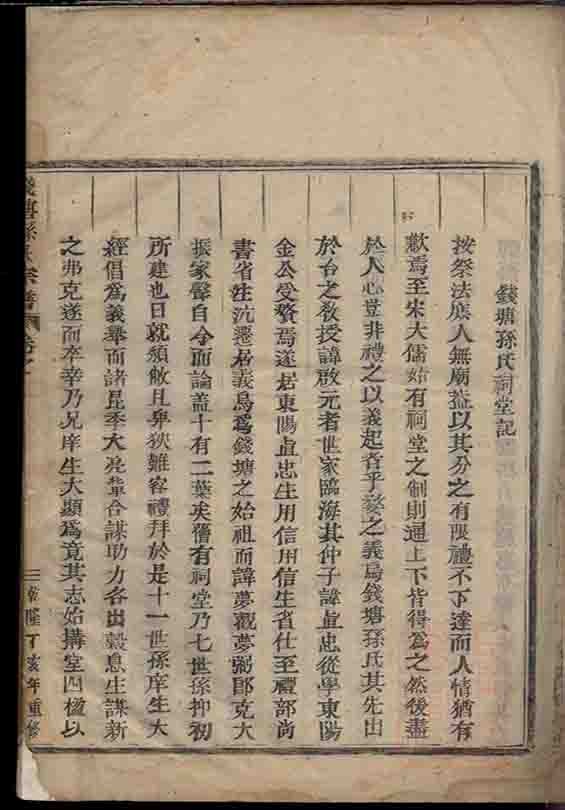 錢塘孫氏祠堂記
按祭法庶人無廟葢以其分之有限禮不下達而人情猶有
歉焉至宋大儒始有祠堂之制則通上下皆得為之然後盡
於人心豈非禮之以義起者乎婺之義烏錢塘孫氏其先出
於台之教授諱啟元者世家臨海其仲子諱貞忠從學東陽
金公受贅焉遂居東陽貞忠生用信用信生省仕至禮部尚
書省生沆遷居義烏為錢塘之始祖而諱夢觀夢弼郡克大
振家聲自今而論盖十有二葉矣舊有祠堂乃七世孫抑初
所建也日就頹敝且卑狹難容禮拜於是十一世孫庠生大
經倡為義舉而諸昆季大亮輩合謀助力各出穀息生謀新
之弗克遂而卒幸乃兄庠生大顯為竟其志始搆堂四楹以
錢塘孫氏宗譜
乾隆丁亥年重修